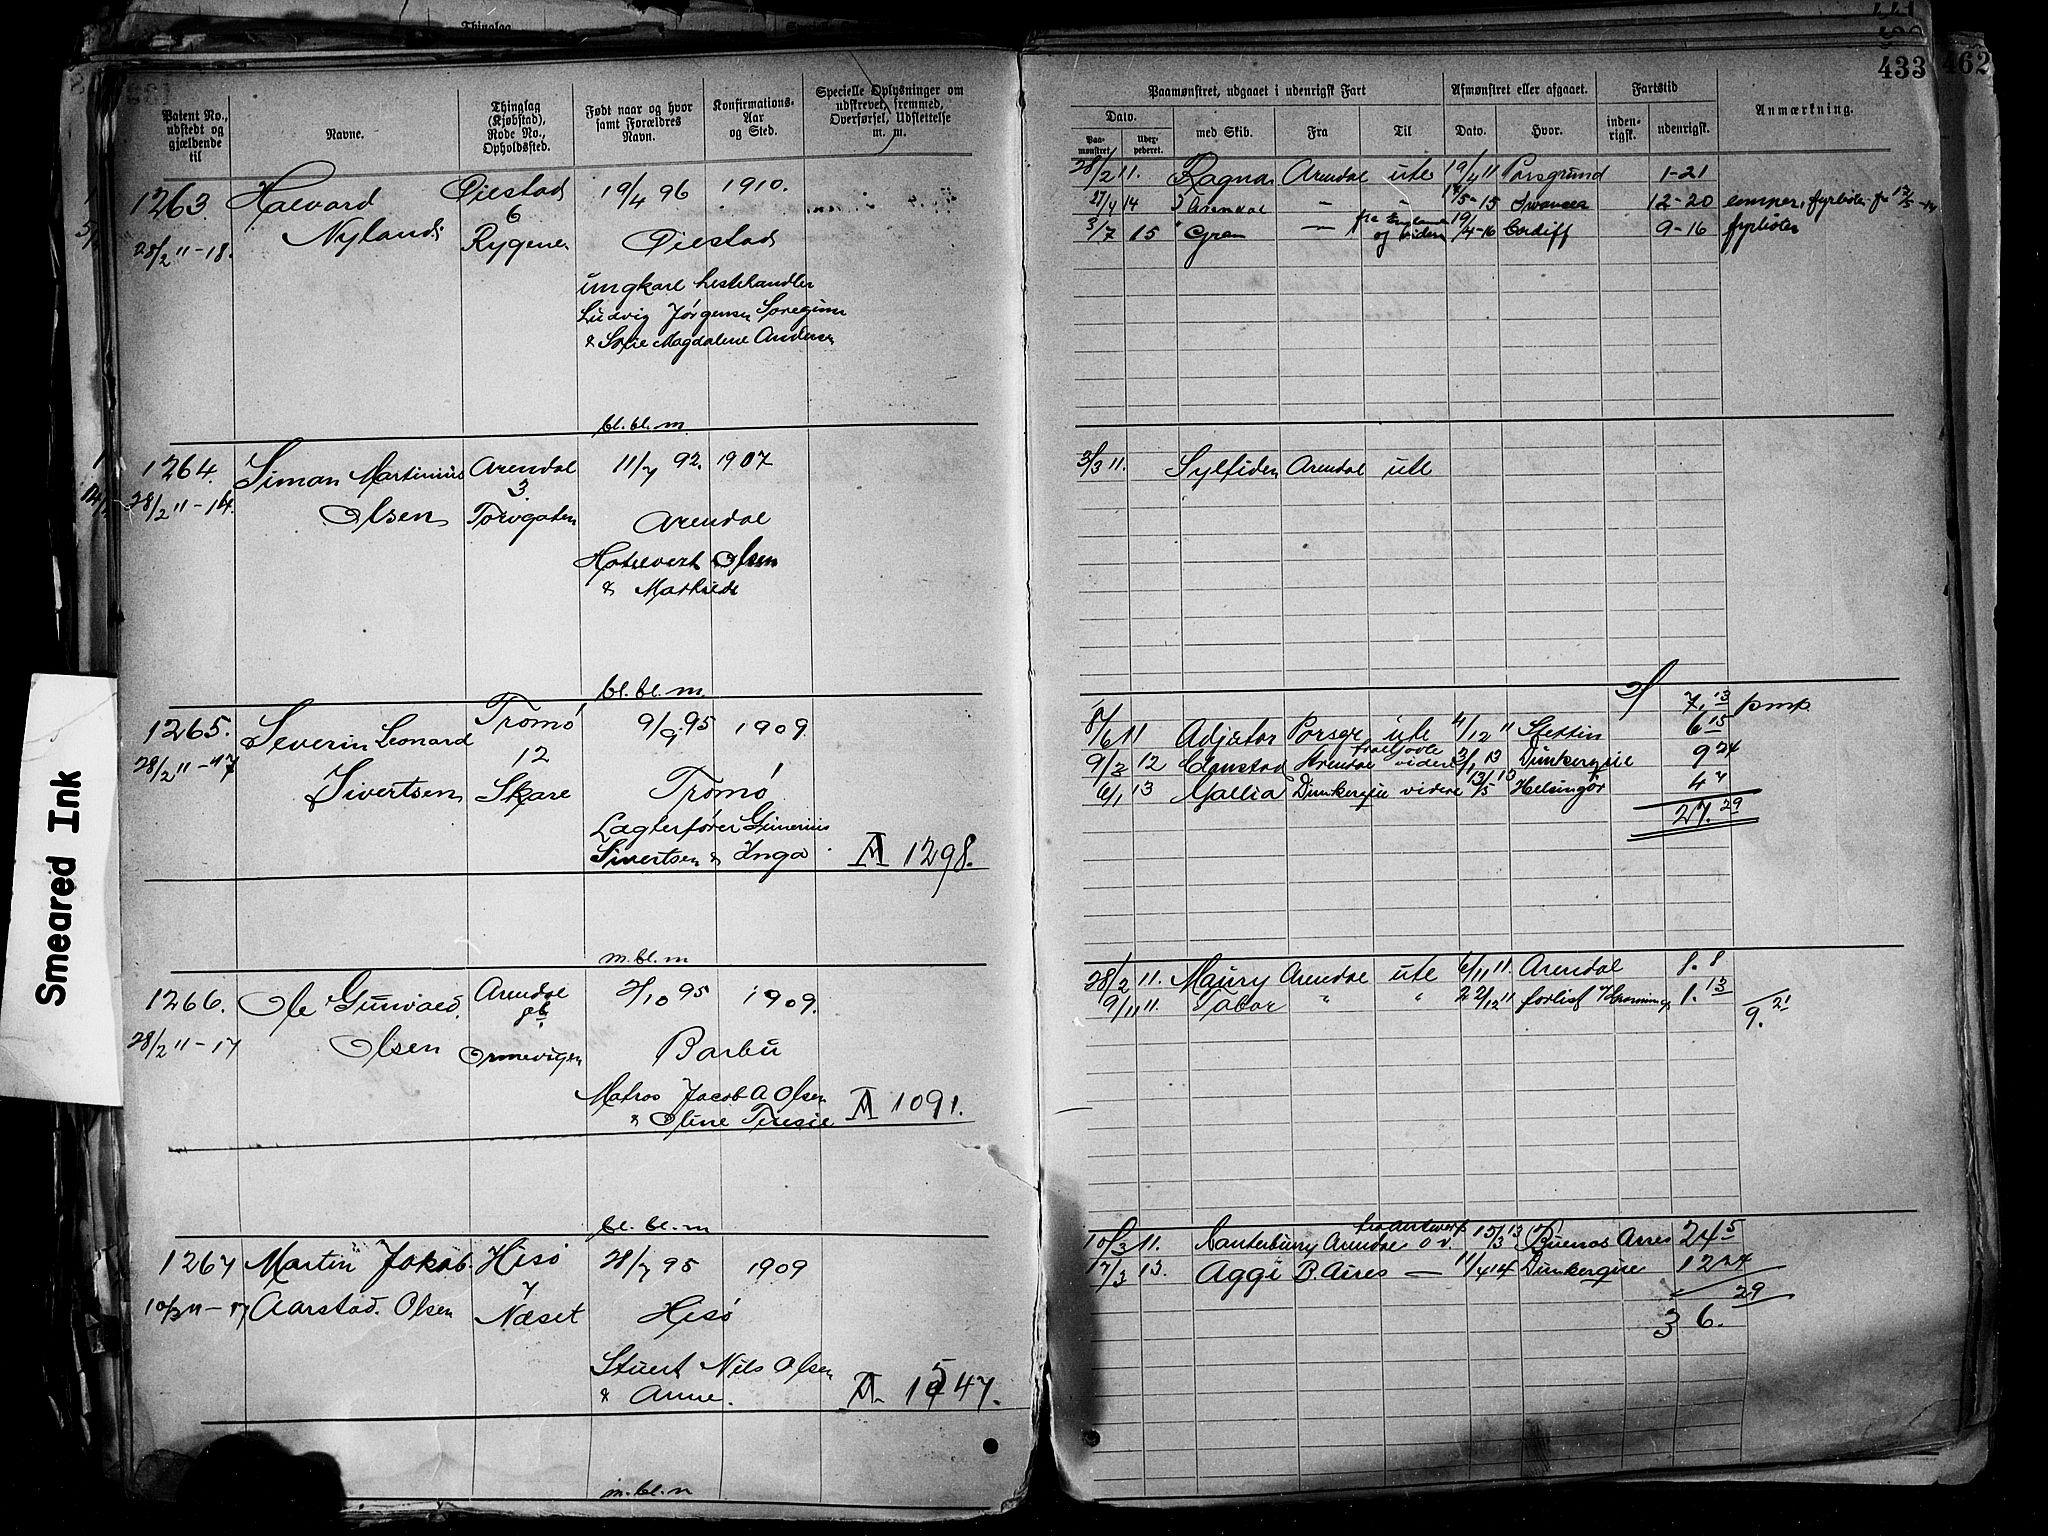 Thinglag
433
462
Patent No., udstedt og gjældende til
Navne.
Thinglag (Kjøbstad), Rode No., Opholdssted.
Født naar og hvor samt Forældres Navn.
Konfirmations- Aar og Sted.
Specielle Oplysninger om udskrevet, fremmed, Overførsel, Udslettelse m. m.
Paamønstret, udgaaet i udenrigsk Fart
Afmønstret eller afgaaet.
Fartstid
Anmærkning.
Dato.
Paa- mønstret
Udex- pederet.
med Skib.
Fra
Til
Dato.
Hvor.
inden- rigsk.
udenrigsk.
1263 Halvard Øiestad 19/4 96 1910.
Nyland 6
28/2 11-18. Rygene Øiestad
ungkarl hestehandler
Ludvig Jørgensen
& Sofie Magdalene Andersen
bl. bl. m.
28/2 11. Ragna Arendal ute 19/4 11 Porsgrund 1-21
27/4 14 Arendal " - 15 Swansea 12-20
3/7 15 " Gran — fra England og videre 19/4-16 Cardiff 9-16 fyrbøter
1264. Siman Martinius Arendal 11/7 92. 1907
28/2 11-14. Olsen 3. Torvgaten Arendal
Olsen
& Mathilde
bl. bl. m.
3/3 11. Sylfiden Arendal ute
1265. Severin Leonard Tromø 9/9 95 1909.
28/2 11-17 Sivertsen 12 Skare Tromø
Sivertsen & Inga A 1298.
m. bl. m
7.13 pmp.
8/6 11 Adjutor Porsgr ute 4/12 11 Stettin 6 15
9/3 12 Arendal videre 2/1 13 Dunkerque 9 24
6/1 13 Gallia Dunkerque videre 13/5 13 Helsingør 4 7
27. 29
1266. Ole Gunvald Arendal 2/10 95 1909.
28/2 11-17 Olsen Ormevigen Barbu
Matros Jacob A Olsen
& Oline Teresie A 1091.
bl. bl. m
28/2 11. Maury Arendal ute 6/11 11. Arendal 8. 8
9/11 11. Tabor " " 22/12 11 forlist 1. 13
9. 21
1267 Martin Jakob Hisø 28/7 95 1909
10/3 11-17 Aarstad. Olsen 7 Næset Hisø
Stuert Nils Olsen
& Anne. A 1547.
m. bl. m
10/3 11. Canterbury Arendal fra Antwerp o v. 15/3 13 Buenos Aires 24 5
17/3 13. Aggi B. Aires — 11/4 14 Dunkerque 12 24
36. 29
Smeared Ink